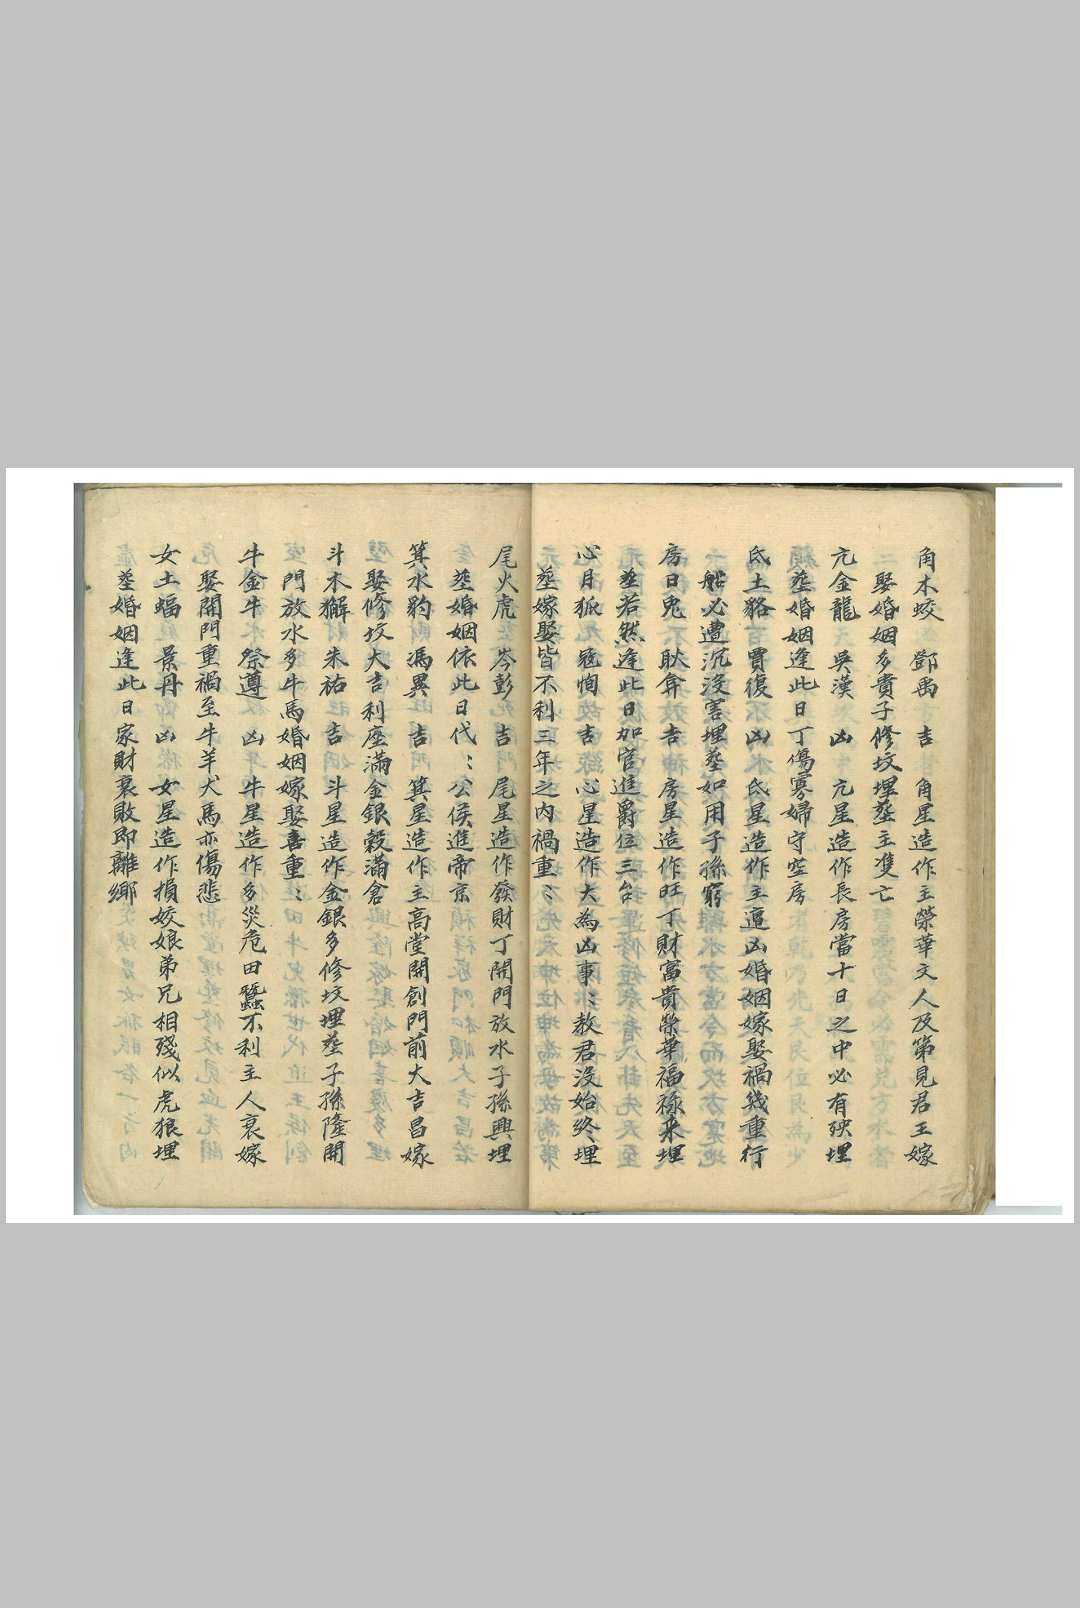 角木蛟　鄧禹　吉　角星造作主榮華文人及第見君王嫁
娶婚姻多貴子修坟埋塟主雙亡
亢金龍　吳漢　凶　亢星造作長房當十日之中必有殃埋
塟婚姻逢此日丁傷寡婦守空房
氐土貉　賈復　凶　氐星造作主遭凶婚姻嫁娶禍幾重行
船必遭沉沒害埋塟如用子孫窮
房日兎　耿弇　吉　房星造作旺丁財富貴榮華福祿来埋
塟若然逢此日加官進爵位三台
心月狐　冦恂　吉　心星造作大為凶事〻教君沒始終埋
塟嫁娶皆不利三年之內禍重〻
尾火虎　岑彭　吉　尾星造作發財丁開門放水子孫興埋
塟婚姻依此日代〻公侯進帝京
箕水豹　馮異　吉　箕星造作主高堂開創門前大吉昌嫁
娶修坟大吉利座滿金銀穀滿倉
斗木獬　朱祐　吉　斗星造作金銀多修坟埋塟子孫隆開
門放水多牛馬婚姻嫁娶喜重〻
牛金牛　祭遵　凶　牛星造作多災危田蠶不利主人衰嫁
娶開門重禍至牛羊犬馬亦傷悲
女土蝠　景丹　凶　女星造作損姣娘弟兄相殘似虎狼埋
塟婚姻逢此日家財衰敗卽離鄉